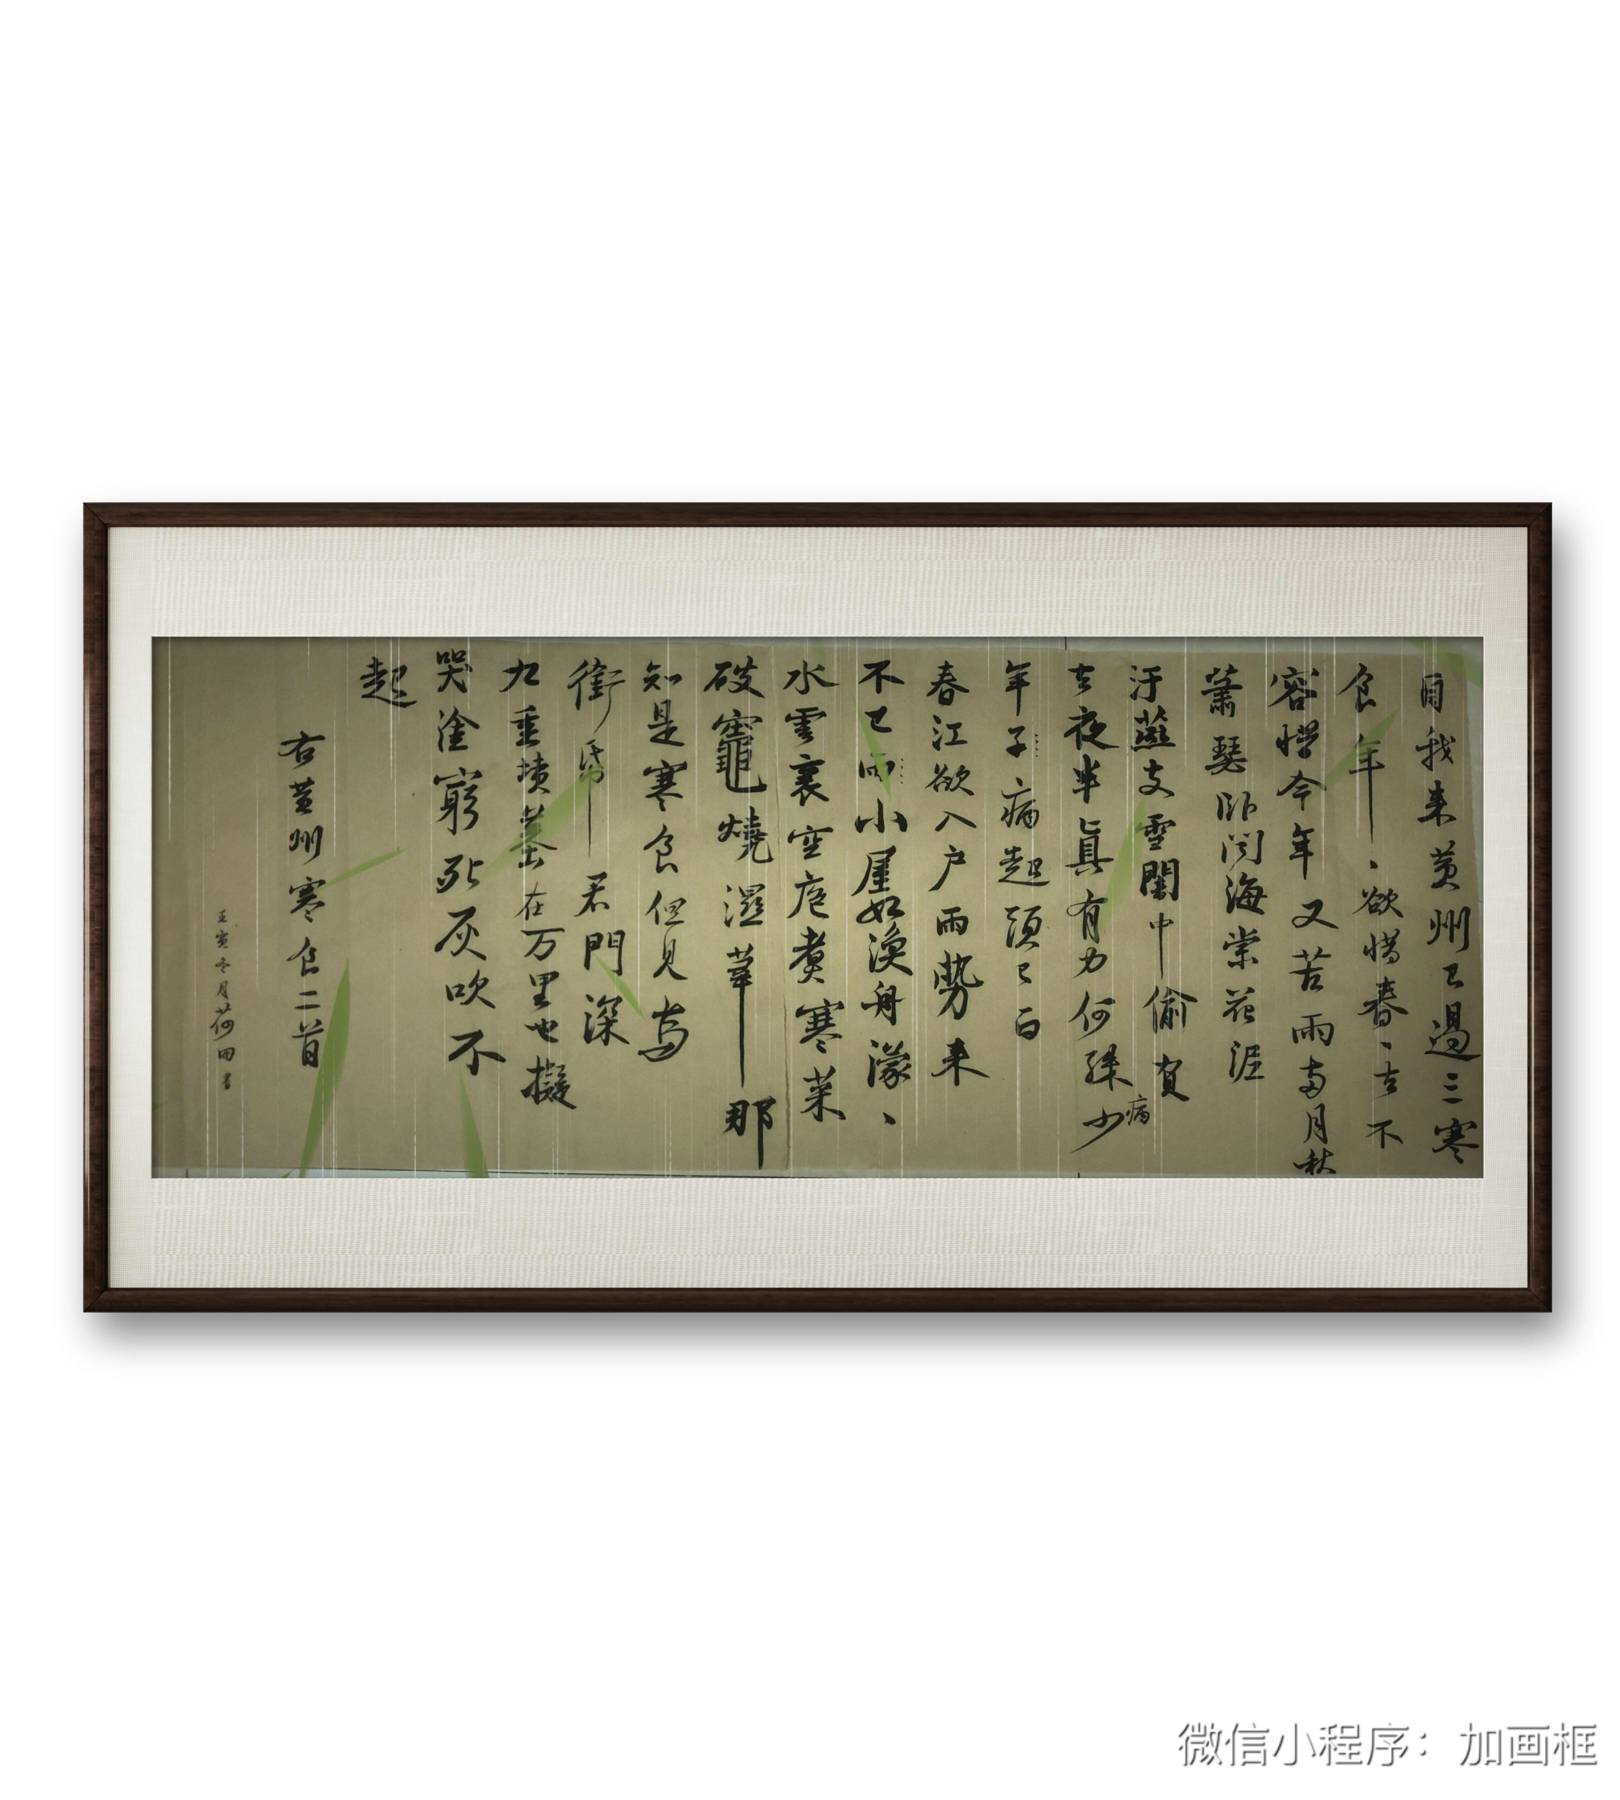 自我来黄州已過三寒
食年、欲惜春、去不
容惜今年又苦雨两月秋
蕭瑟卧闻海棠花泥
汙燕支雪闇中偷負
去夜半真有力何殊少
病
年子病起頭已白
春江欲入户雨勢来
不已雨小屋如漁舟濛、
水雲裏空庖煮寒菜
破竈燒濕葦那
知是寒食但見烏
銜帋君門深
九重墳墓在万里也擬
哭塗窮死灰吹不
起
右黄州寒食二首
壬寅冬月荷田書
微信小程序：加画框